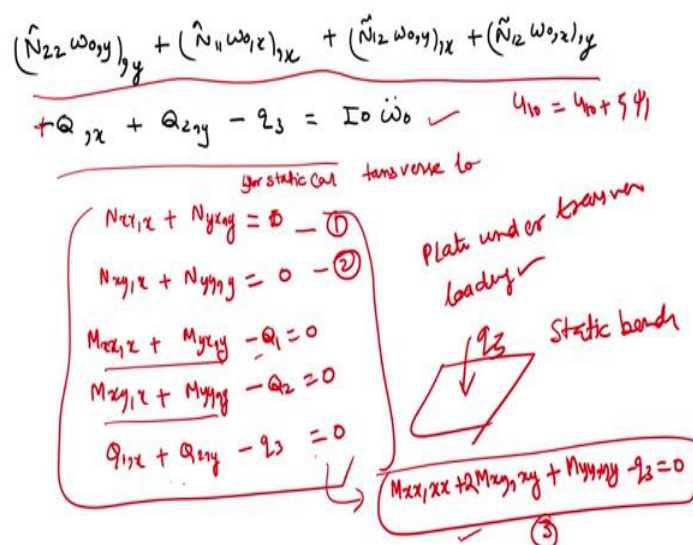 (N̂22 ω0,y),y + (N̂11 ω0,x),x + (Ñ12 ω0,y),x + (Ñ12 ω0,x),y
+Q,x + Q2,y - q3 = I0 ω̈0 ✓
u10 = u10 + ζψ1
for static case transverse lo
Nxx,x + Nyx,y = 0 — ①
Nxy,x + Nyy,y = 0 — ②
Mxx,x + Myx,y - Q1 = 0
Mxy,x + Myy,y - Q2 = 0
Q1,x + Q2,y - q3 = 0
Plate under
loading
q3
Static
Mxx,xx + 2Mxy,xy + Myy,yy - q3 = 0
✓ ③